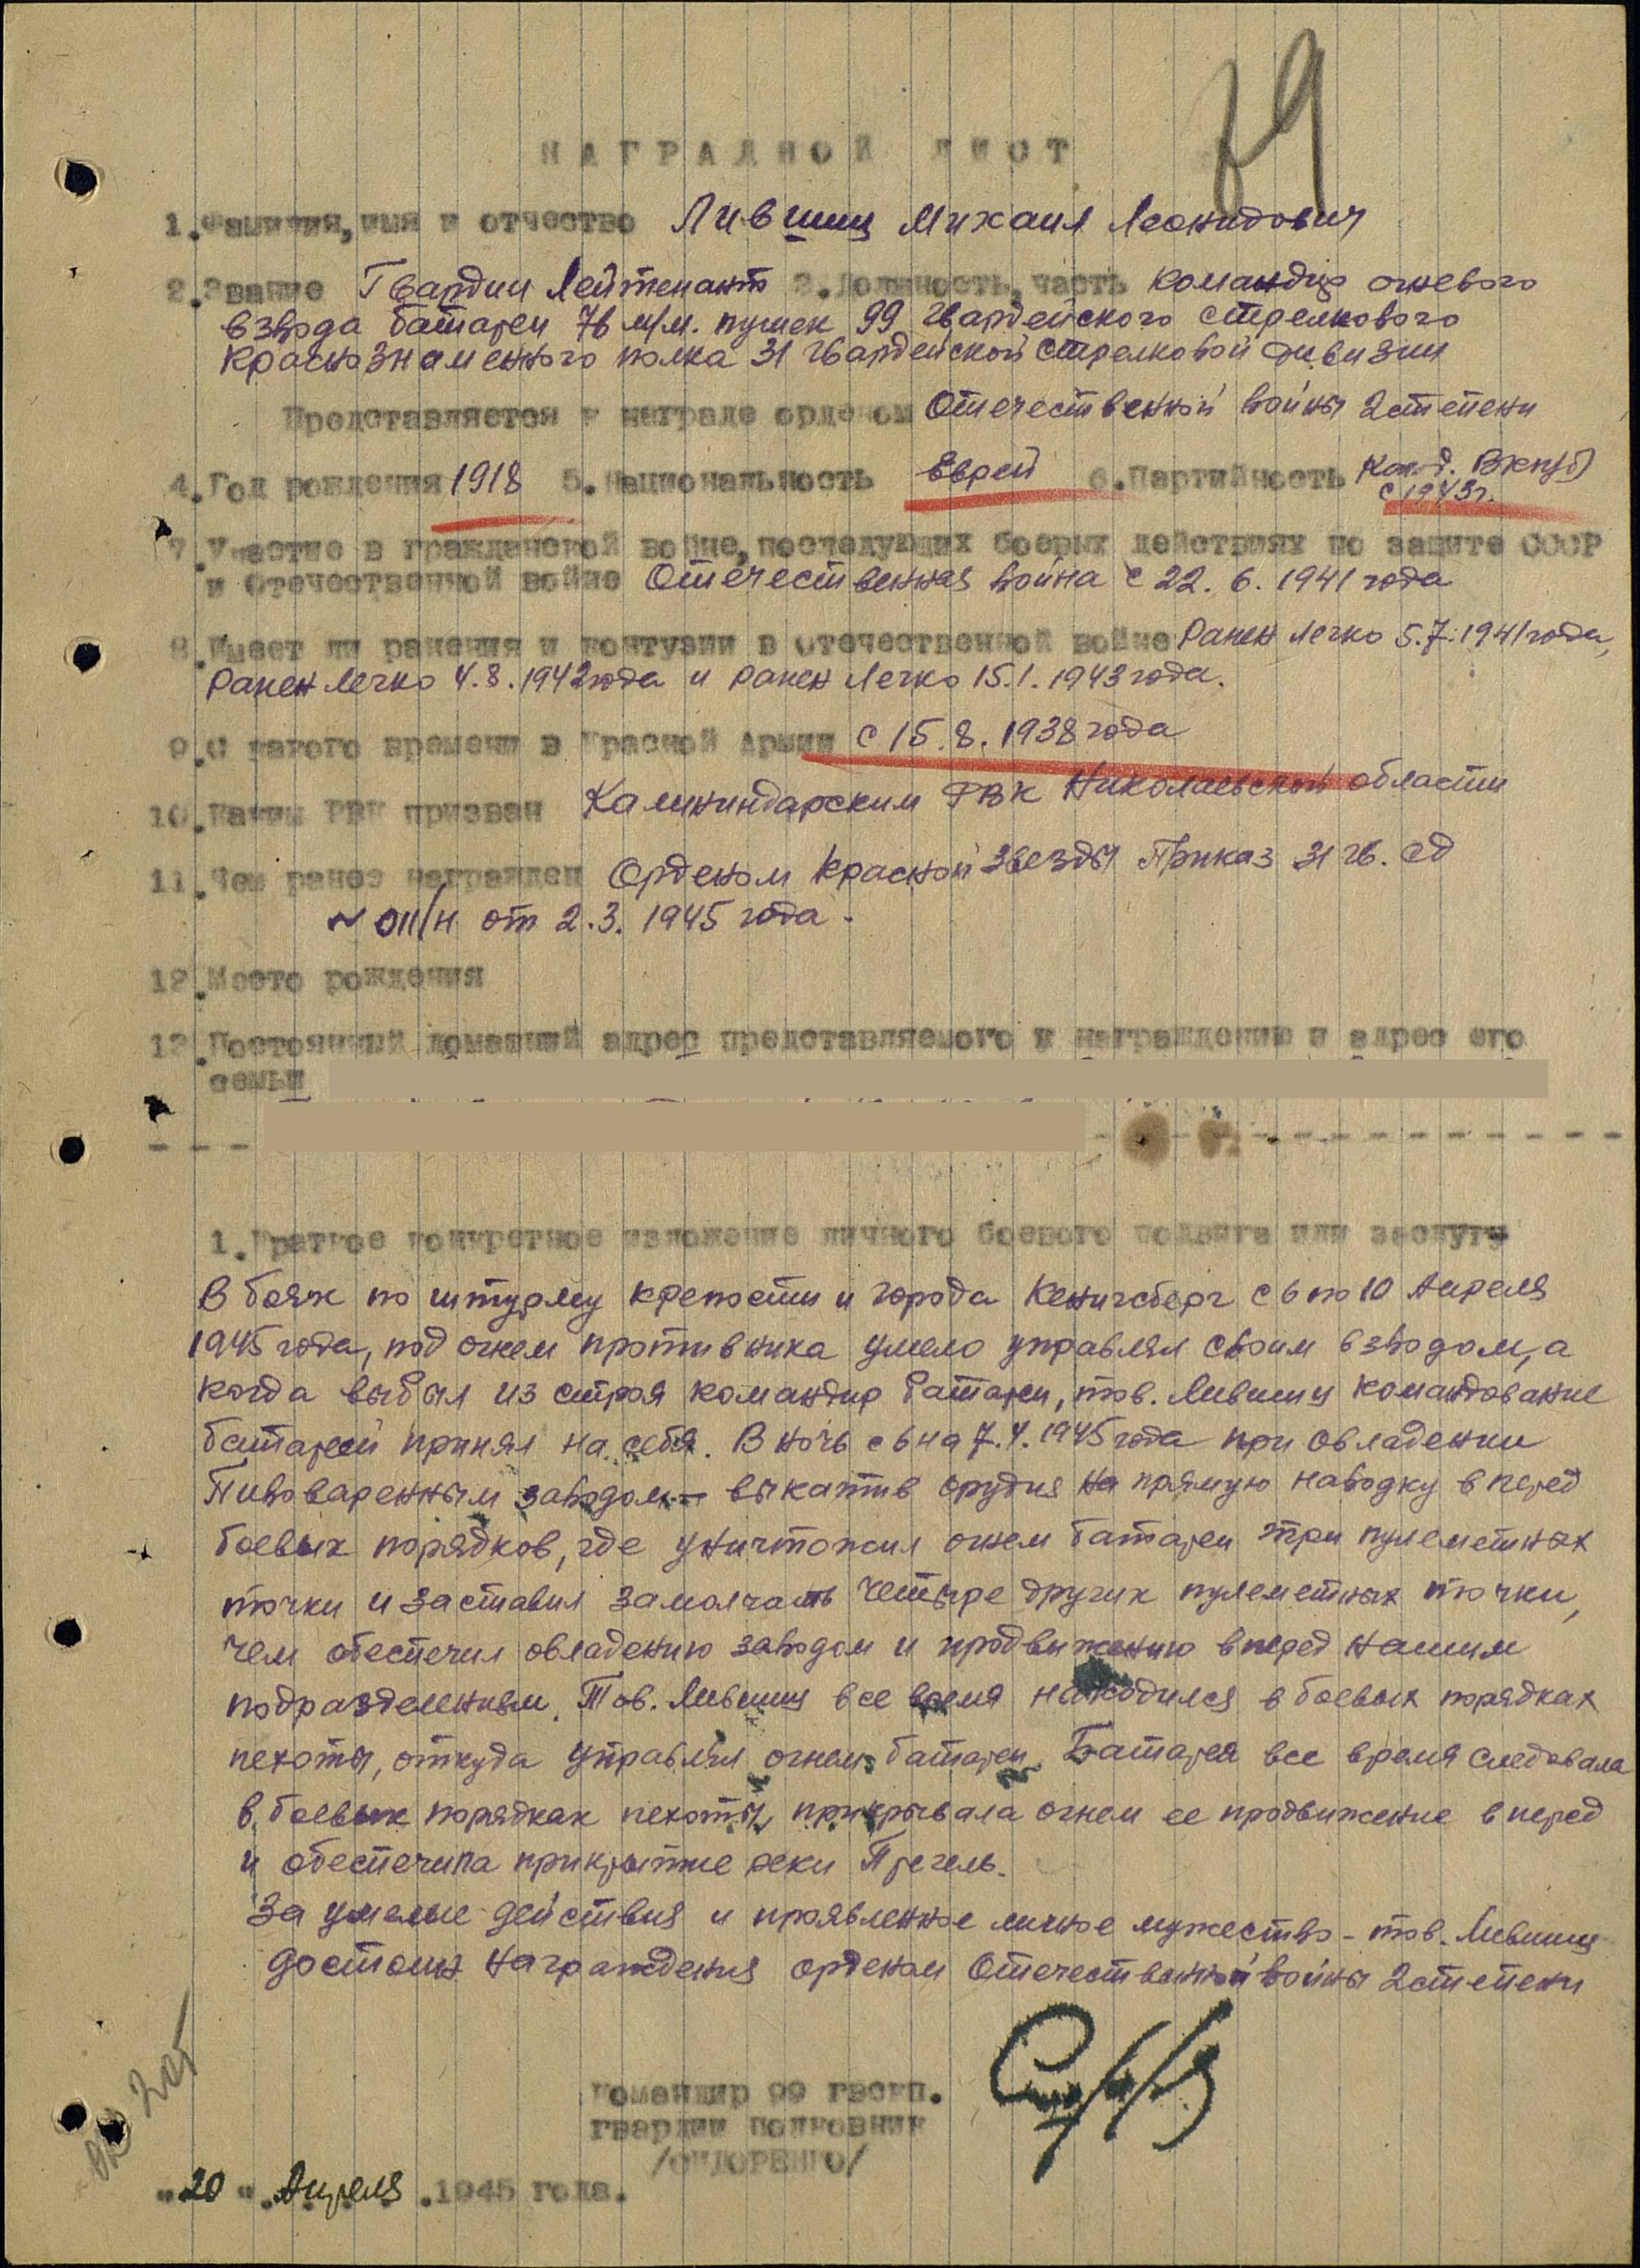 79
НАГРАДНОЙ ЛИСТ
1. Фамилия, имя и отчество Лившиц Михаил Леонидович
2. Звание Гвардии Лейтенант 3. Должность, часть командир огневого
взвода батареи 76 м/м. пушек 99 гвардейского стрелкового
краснознаменного полка 31 гвардейской стрелковой дивизии
Представляется к награде орденом Отечественной войны 2 степени
4. Год рождения 1918 5. Национальность Еврей 6. Партийность Канд. ВКП(б)
с 1943 г.
7. Участие в гражданской войне, последующих боевых действиях по защите СССР
и Отечественной войне Отечественная война с 22. 6. 1941 года
8. Имеет ли ранения и контузии в отечественной войне Ранен легко 5.7.1941 года,
Ранен легко 4.8.1942 года и ранен легко 15.1.1943 года.
9. С какого времени в Красной Армии с 15.8.1938 года
10. Каким РВК призван Калининдарским РВК Николаевской области
11. Чем ранее награжден Орденом Красной Звезды Приказ 31 гв. сд
№ 011/н от 2.3.1945 года.
12. Место рождения
13. Постоянный домашний адрес представляемого к награждению и адрес его
семьи
1. Краткое конкретное изложение личного боевого подвига или заслуги
В боях по штурму крепости и города Кенигсберг с 6 по 10 Апреля
1945 года, под огнем противника умело управлял своим взводом, а
когда выбыл из строя командир батареи, тов. Лившиц командование
батареей принял на себя. В ночь с 6 на 7.4.1945 года при овладении
Пивоваренным заводом – выкатив орудия на прямую наводку вперед
боевых порядков, где уничтожил огнем батареи три пулеметных
точки и заставил замолчать четыре других пулеметных точки,
чем обеспечил овладению заводом и продвижению вперед нашим
подразделениям. Тов. Лившиц все время находился в боевых порядках
пехоты, откуда управлял огнем батареи. Батарея все время следовала
в боевых порядках пехоты, прикрывала огнем ее продвижение вперед
и обеспечила прикрытие реки Прегель.
За умелые действия и проявленное личное мужество – тов. Лившиц
достоин награждения орденом Отечественной войны 2 степени
Командир 99 гвскп.
гвардии полковник
/СИДОРЕНКО/
"20" Апреля 1945 года.